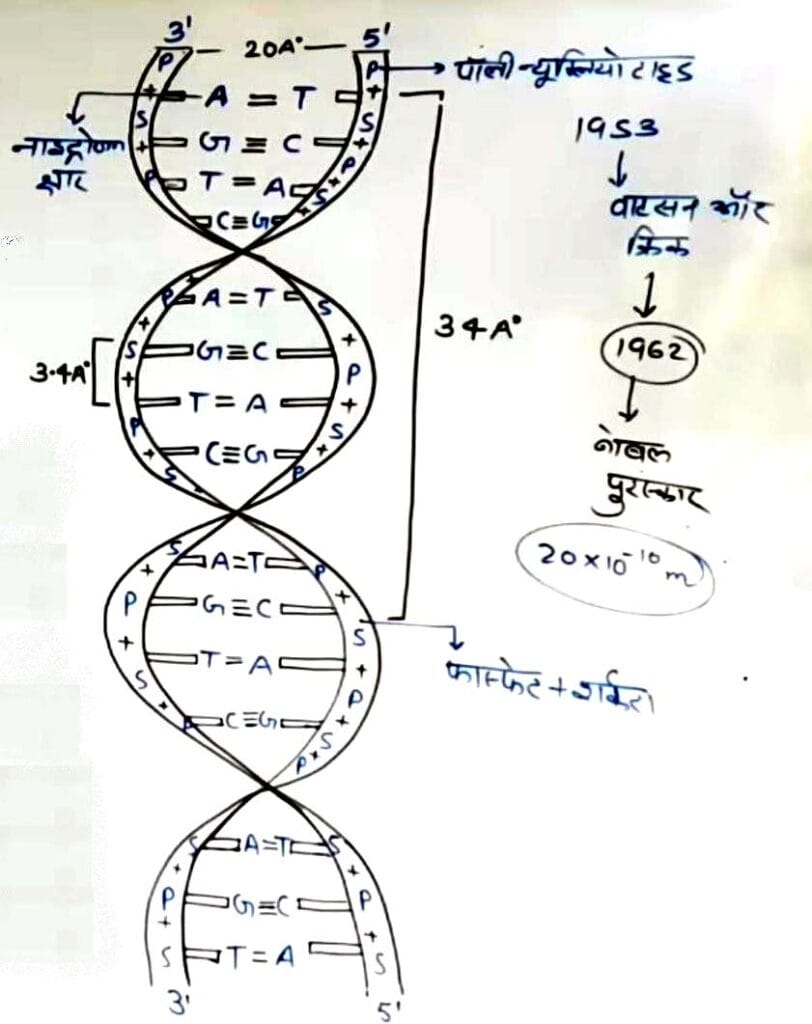 3' — 20A° — 5'
P
P → पॉली-न्यूक्लियोटाइड
+ A = T +
S S
नाइट्रोजन
क्षार
+ G ≡ C +
P T = A P
+
S
C ≡ G
1953
↓
वाटसन और
क्रिक
↓
1962
↓
नोबल
पुरस्कार
20×10⁻¹⁰ m
34A°
P + A = T S
+ +
3.4A°
S G ≡ C P
+ T = A +
P S
+ C ≡ G +
S P
S A=T P
+ +
P G ≡ C S
फास्फेट + शर्करा
+ T = A +
S P
+ +
P C≡G S
+
P
S A=T S
+ +
P G≡C P
+ +
S T = A S
3' 5'